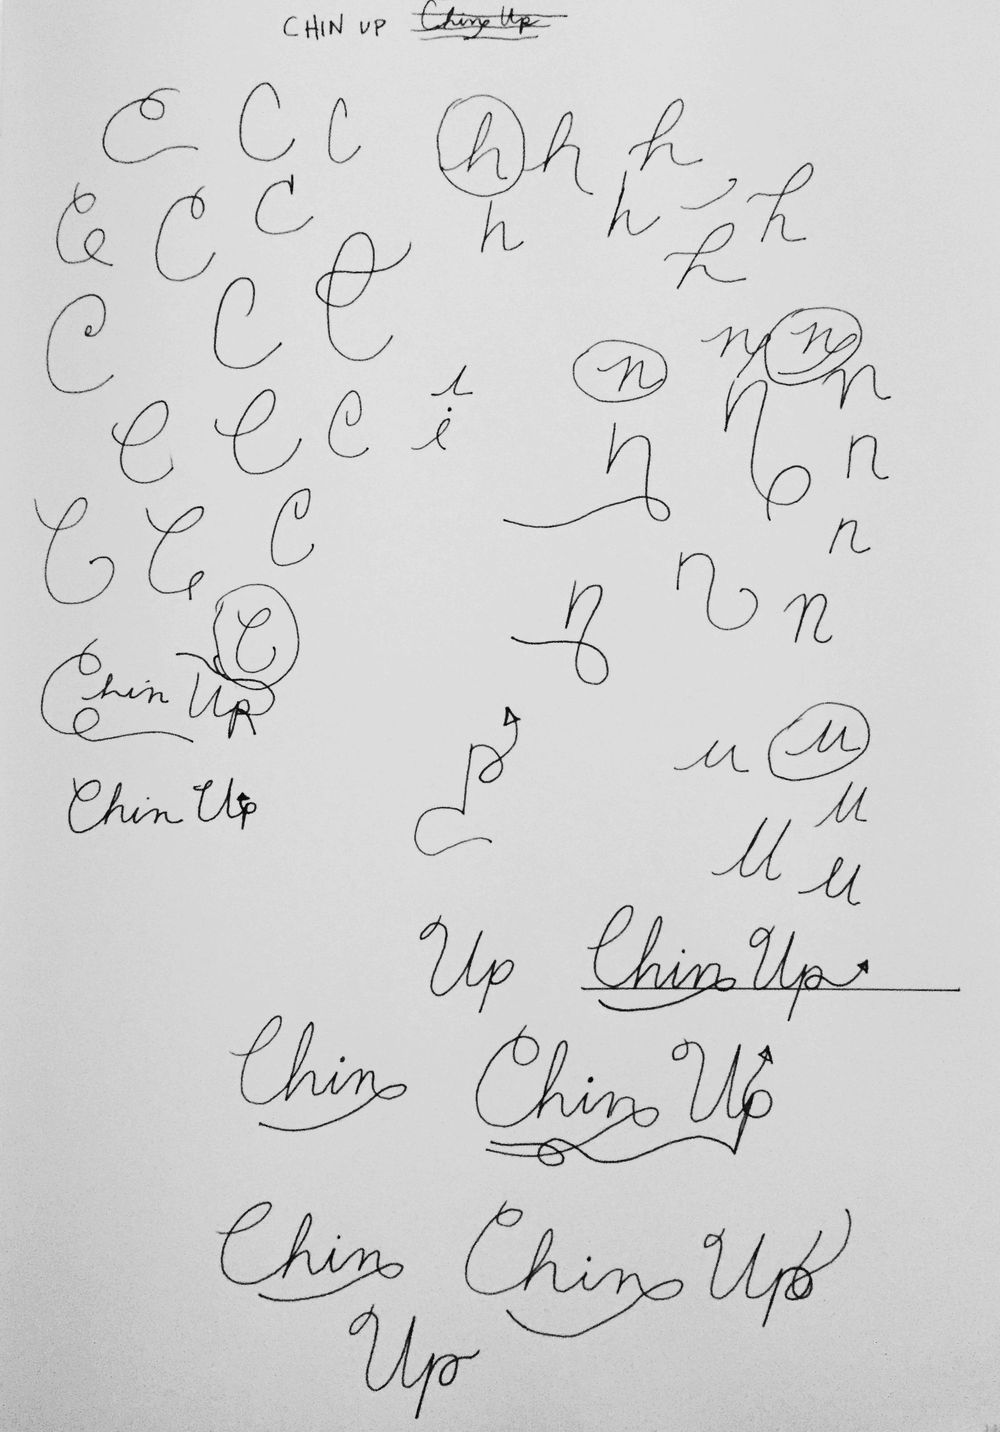 CHIN UP Chin Up
C C C h h h
C C C h h h
C h
C C C n n
C C C i n n n
i n n
C C C n
C n n n
Chin Up
u u
Chin Up p u
u u
Up Chin Up
Chin Chin Up
Chin Chin Up
Up